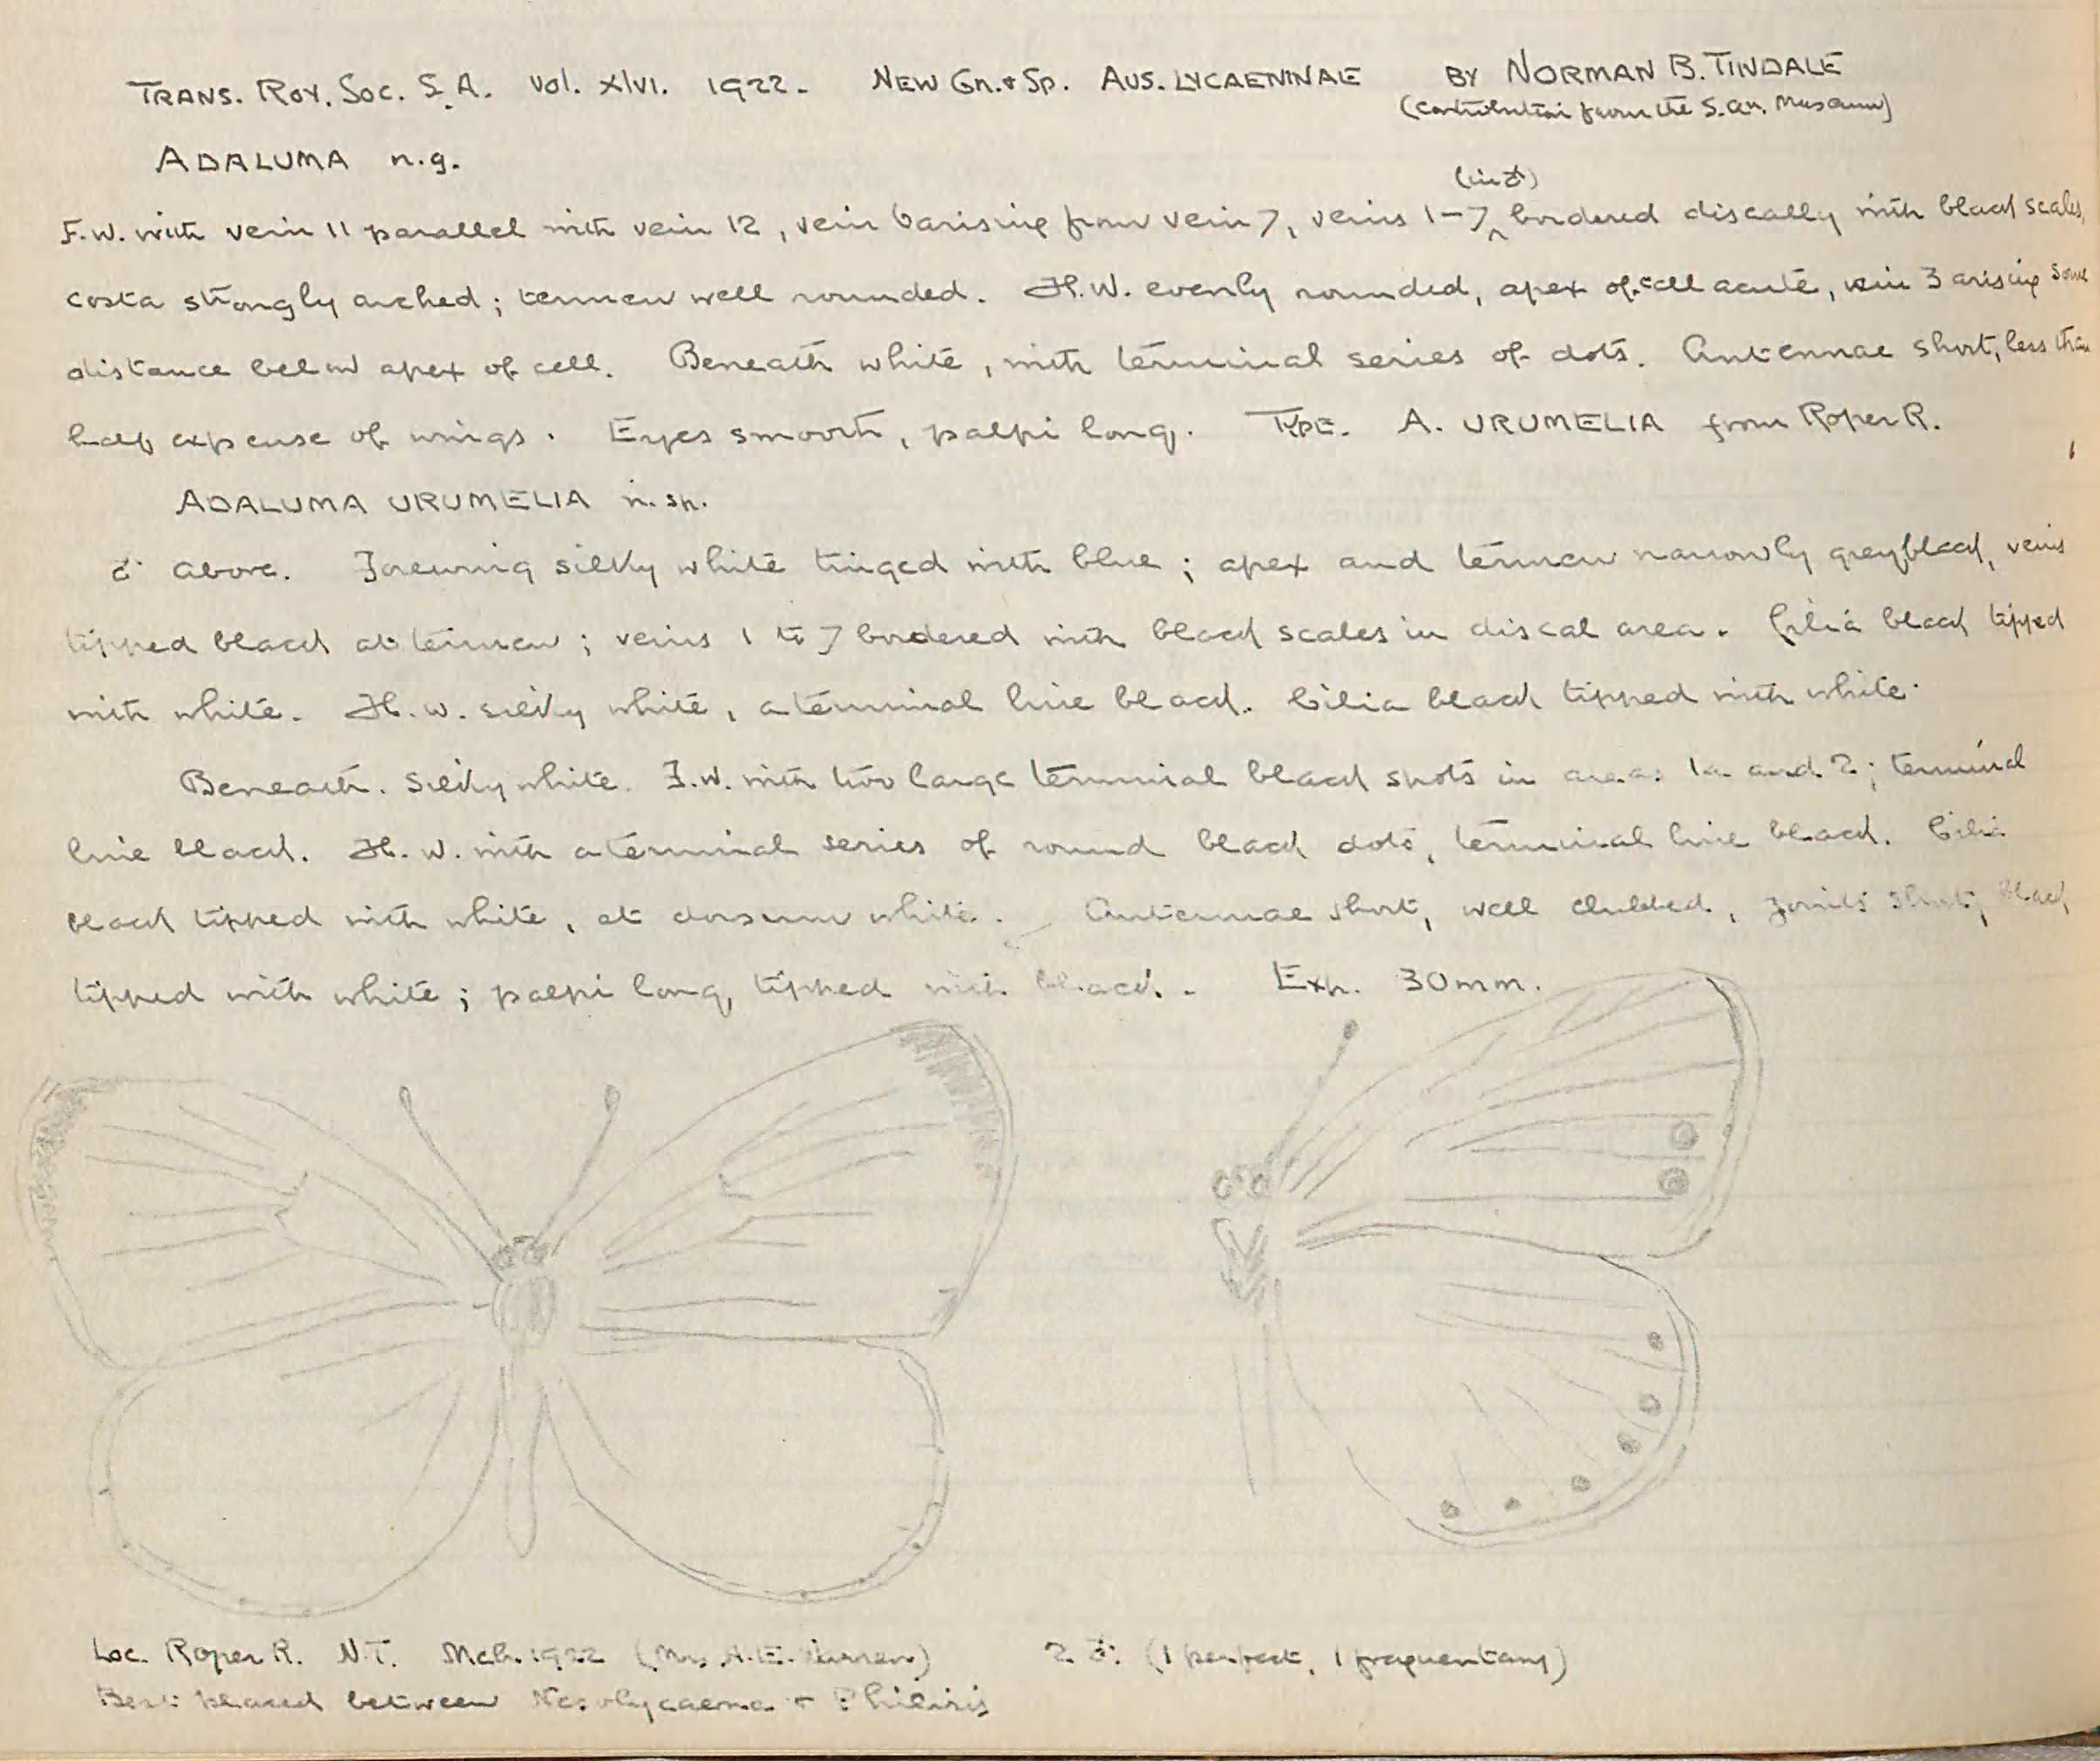 TRANS. ROY. SOC. S.A. Vol. XLVI. 1922. NEW GN. & SP. AUS. LYCAENINAE BY NORMAN B. TINDALE
(Contribution from the S. Au. Museum)
ADALUMA n.g.
(in ♂)
F.W. with vein 11 parallel with vein 12, vein 6 arising from vein 7, veins 1-7 ^ bordered discally with black scales,
costa strongly arched; termen well rounded. H.W. evenly rounded, apex of cell acute, vein 3 arising some
distance below apex of cell. Beneath white, with terminal series of dots. Antennae short, less than
half expense of wings. Eyes smooth, palpi long. TYPE. A. URUMELIA from Roper R.
ADALUMA URUMELIA n.sp.
♂ above. Forewing silky white tinged with blue; apex and termen narrowly greyblack, veins
tipped black at termen; veins 1 to 7 bordered with black scales in discal area. Cilia black tipped
with white. H.W. silky white, a terminal line black. Cilia black tipped with white.
Beneath. Silky white. F.W. with two large terminal black spots in areas 1a and 2; terminal
line black. H.W. with a terminal series of round black dots, terminal line black. Cilia
black tipped with white, at dorsum white. Antennae short, well clubbed, joints short, black,
tipped with white; palpi long, tipped with black. Exp. 30mm.
Loc. Roper R. N.T. Mch. 1922 (Mrs H.E. Warren) 2 ♂. (1 perfect, 1 fragmentary)
Best placed between Nesolycaena & Philiris